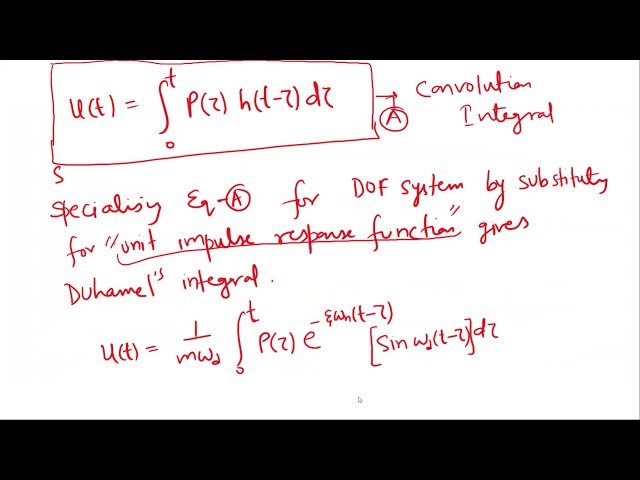 u(t) = ∫₀ᵗ P(τ) h(t-τ) dτ → Convolution
(A) Integral
S
Specialising Eq-(A) for DOF system by substituty
for "unit impulse response function" gives
Duhamel's integral.
u(t) = 1/(mω_d) ∫₀ᵗ P(τ) e^(-ξω_n(t-τ)) [Sin ω_d(t-τ)] dτ